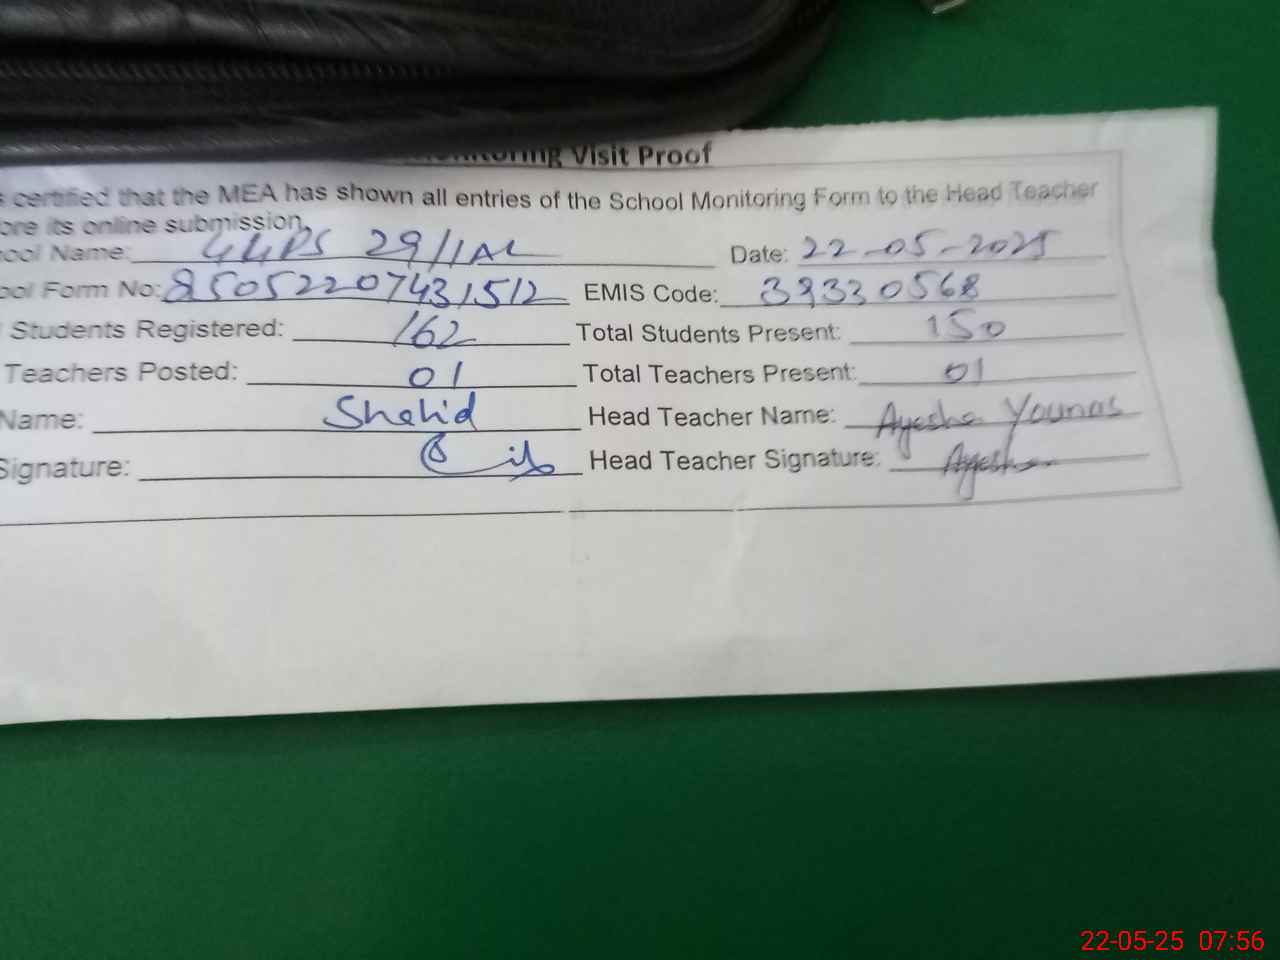 onitoring Visit Proof
s certified that the MEA has shown all entries of the School Monitoring Form to the Head Teacher
ore its online submission.
ool Name: GGPS 29/11AL Date: 22-05-2025
ool Form No: 85052207431512 EMIS Code: 39330568
Students Registered: 162 Total Students Present: 150
Teachers Posted: 01 Total Teachers Present: 01
Name: Shahid Head Teacher Name: Ayesha Younas
Signature: Head Teacher Signature: Ayesha
22-05-25 07:56